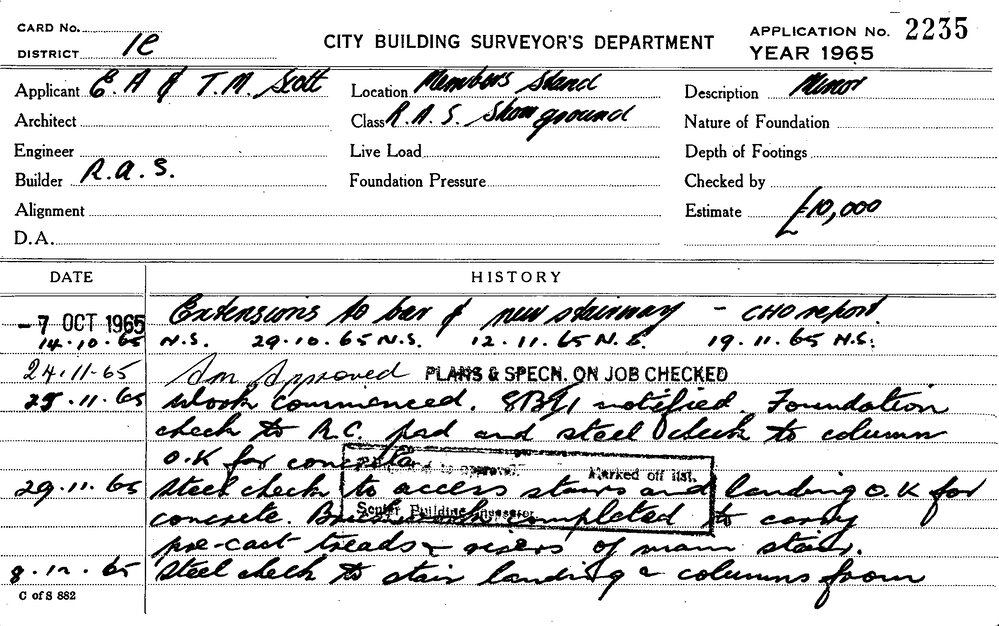 CARD No.
DISTRICT 1e
CITY BUILDING SURVEYOR'S DEPARTMENT
APPLICATION No. 2235
YEAR 1965
Applicant E. A & T. M. Scott
Location Members Stand
Description Minor
Architect
Class R. A. S. Show ground
Nature of Foundation
Engineer
Live Load
Depth of Footings
Builder R. a. S.
Foundation Pressure
Checked by
Alignment
Estimate £10,000
D.A.
DATE HISTORY
- 7 OCT 1965 Extensions to bar & new stairway - CHO report.
14.10.65 N.S. 29.10.65 N.S. 12.11.65 N.S. 19.11.65 N.S.
24.11.65 Approved PLANS & SPECN. ON JOB CHECKED
25.11.65 Work commenced. notified. Foundation
check to R.C. pad and steel check to column
O.K for concrete.
to approval. Marked off list.
29.11.65 Steel check to access stairs and landing O.K for
Senior Building Inspector
concrete. Brickwork completed to carry
pre-cast treads & risers of main stair.
8.12.65 Steel check to stair landing & columns from
C of S 882